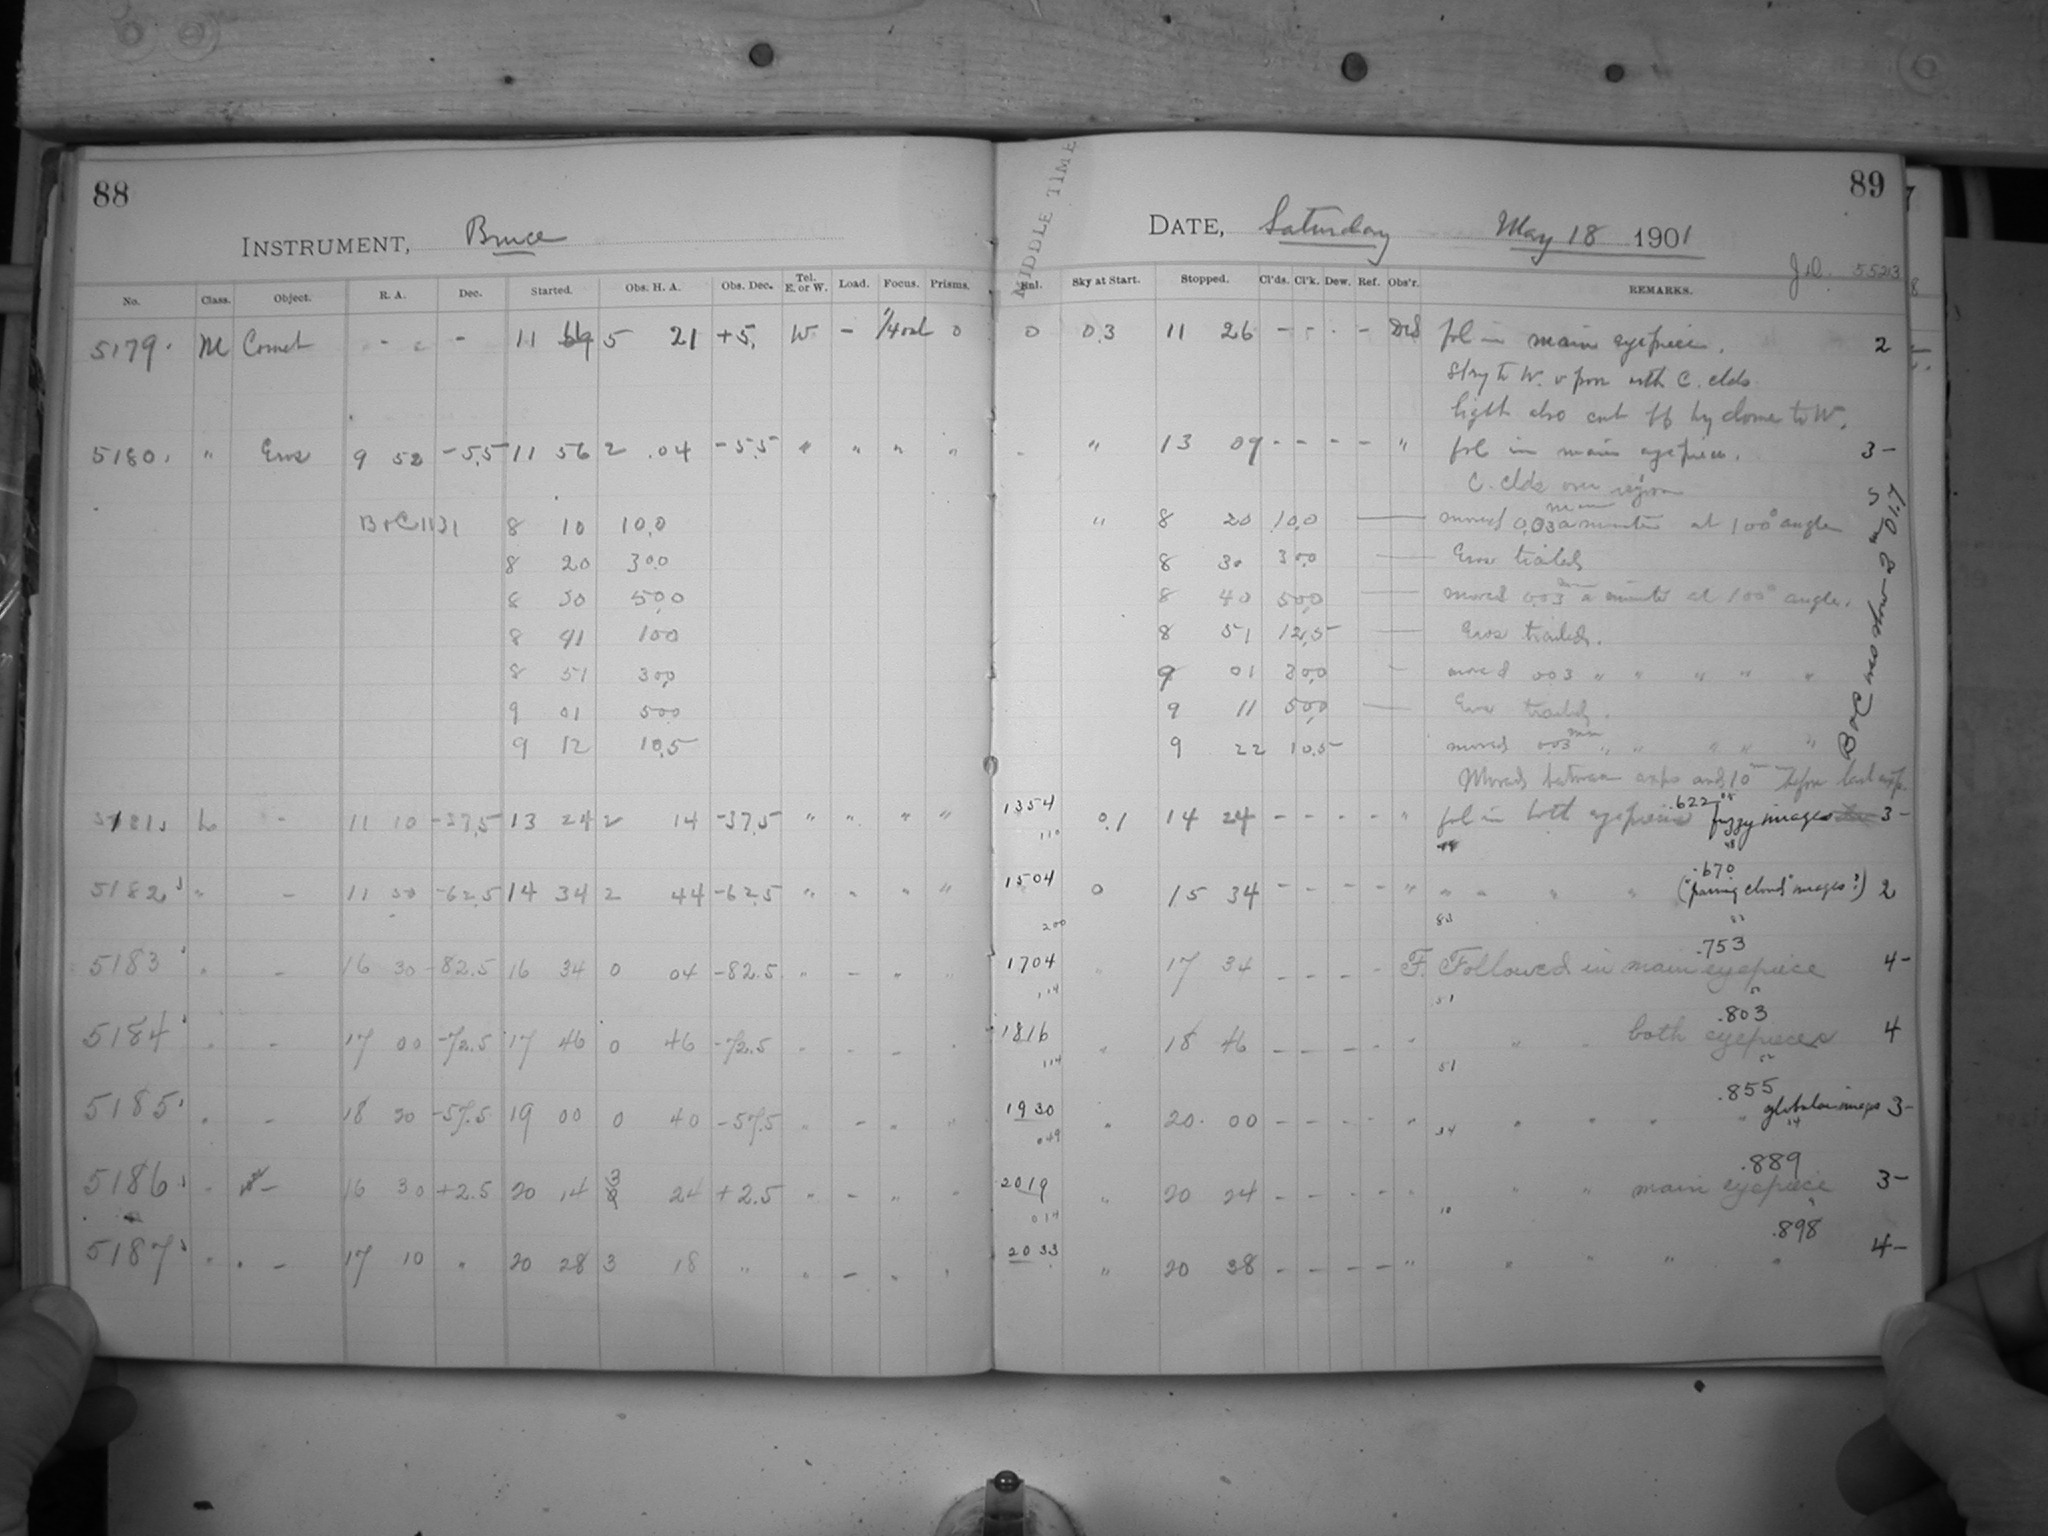 88
INSTRUMENT, Bruce
No. Class. Object. R. A. Dec. Started. Obs. H. A. Obs. Dec. Tel. E. or W. Load. Focus. Prisms.
5179 M Comet - - - 11 5 21 +5. W - 0
5180 " Eros 9 52 -5.5 11 56 2 04 -5.5 " " " "
B & C 1131 8 10 10.0
8 20 30.0
8 30 50.0
8 41 10.0
8 51 30.0
9 01 50.0
9 12 10.5
5181 L - 11 10 -37.5 13 24 2 14 -37.5 " " " "
5182 " - 11 50 -62.5 14 34 2 44 -62.5 " " " "
5183 " - 16 30 -82.5 16 34 0 04 -82.5 " - " "
5184 " - 17 00 -72.5 17 46 0 46 -72.5 " - - "
5185 " - 18 20 -57.5 19 00 0 40 -57.5 " - " "
5186 " - 16 30 +2.5 20 14 3 24 +2.5 " - " "
5187 " - 17 10 " 20 28 3 18 " " - " "
MIDDLE TIME
89
DATE, Saturday May 18 1901
J.D. 5523
Enl. Sky at Start. Stopped. Cl'ds. Cl'k. Dew. Ref. Obs'r. REMARKS.
0 0.3 11 26 - - - - fol in main eyepiece. 2
Sky to W. with C. clds
light also cut off by dome to W.
- " 13 09 - - - - " fol in main eyepiece. 3-
C. clds over region
" 8 20 10.0 moved 0.03 mm a minute at 100° angle
8 30 30.0 Eros trailed
8 40 50.0 moved 0.03 mm a minute at 100° angle.
8 51 12.5 Eros trailed.
9 01 30.0 moved .003 " " " " "
9 11 50.0 Eros trailed.
9 22 10.5 moved .003 mm " " " " "
Moved between exps and 10m before last exp.
B & C was slow 2m 01.7s
1354 0.1 14 24 - - - - " fol in both eyepieces .622 fuzzy images 3-
110
1504 0 15 34 - - - - " " " " " .670 ("passing cloud" images?) 2
200 83
1704 " 17 34 - - - - F. Followed in main eyepiece .753 4-
114 51
1816 " 18 46 - - - - " " " both eyepieces .803 4
114 51
1930 " 20 00 - - - - " " " " " .855 globular images 3-
049 34
2019 " 20 24 - - - - " " " main eyepiece .889 3-
014 10
2033 " 20 38 - - - - " " " " " .898 4-